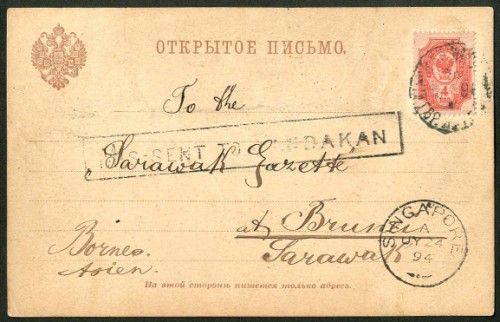 ОТКРЫТОЕ ПИСЬМО.
4
To the
MIS-SENT TO SANDAKAN
Sarawak Gazette
at Brunei
Sarawak
Borneo
Asien.
SINGAPORE
A
JY 24
94
На этой сторонѣ пишется только адресъ.